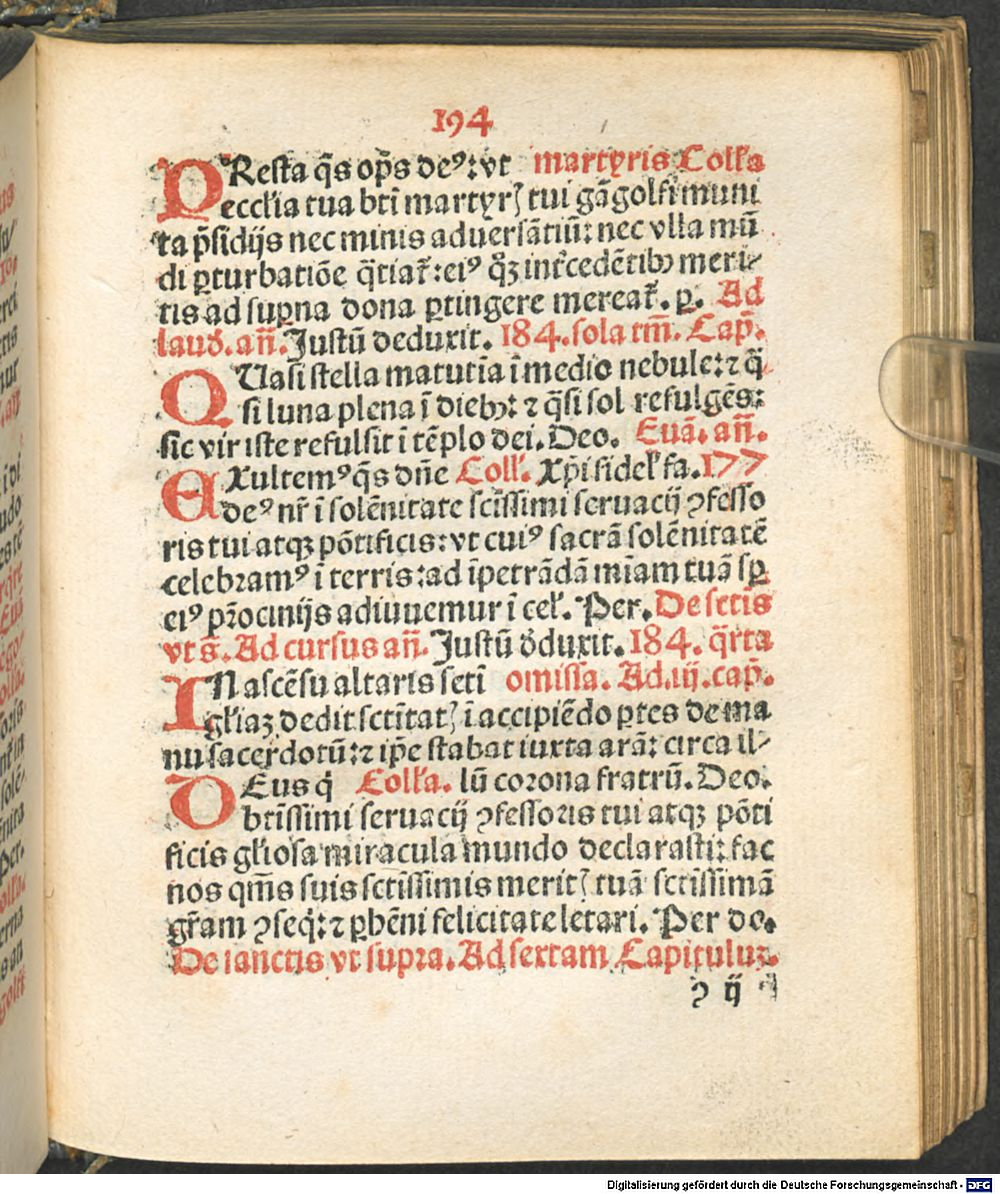 194
PResta q̄s op̄s deꝰ: vt martyris Coll'a
eccl'ia tua bt̄i martyrꝭ tui gāgolfi muni
ta p̄sidijs nec minis aduersātiū: nec vlla mū
di ꝑturbatiōe q̄tiat᷑: eiꝰ qꝫ int᷑cedētibꝰ meri⸗
tis ad suꝑna dona ꝑtingere mereat᷑. ꝑ. Ad
laud. an̄. Justū deduxit. 184. sola tm̄. Cap̄.
QUasi stella matutīa ī medio nebule: ⁊ q̄
si luna plena ī diebꝰ: ⁊ q̄si sol refulgēs:
sic vir iste refulsit ī tēplo dei. Deo. Euā. an̄.
EXultemꝰ q̄s dn̄e Coll'. xp̄i fidel' fa. 177
deꝰ nr̄ ī solēnitate sctīssimi seruacij ꝯfesso
ris tui atqꝫ pōtificis: vt cuiꝰ sacrā solēnitatē
celebramꝰ ī terris: ad īpetrādā mīam tuā sꝑ
eiꝰ pr̄ocinijs adiuuemur ī cel'. Per. De sctīs
vt s̄. Ad cursus an̄. Justū dduxit. 184. q̄rta
IN ascēsu altaris sctī omissa. Ad. iij. cap̄.
gl'iaꝫ dedit sctītatꝭ ī accipiēdo ꝑtes de ma
nu sacerdotū: ⁊ ip̄e stabat iuxta arā: circa il⸗
DEus q̇ Coll'a. lū corona fratrū. Deo.
btīssimi seruacij ꝯfessoris tui atqꝫ pōti
ficis gl'iosa miracula mundo declarasti: fac
nos qm̄s suis sctīssimis meritꝭ tuā sctīssimā
gr̄am ꝯseq̇: ⁊ ꝑhēni felicitate letari. Per do.
De sanctis vt supra. Ad sextam Capituluꝫ.
ꝯ ij
Digitalisierung gefördert durch die Deutsche Forschungsgemeinschaft - DFG